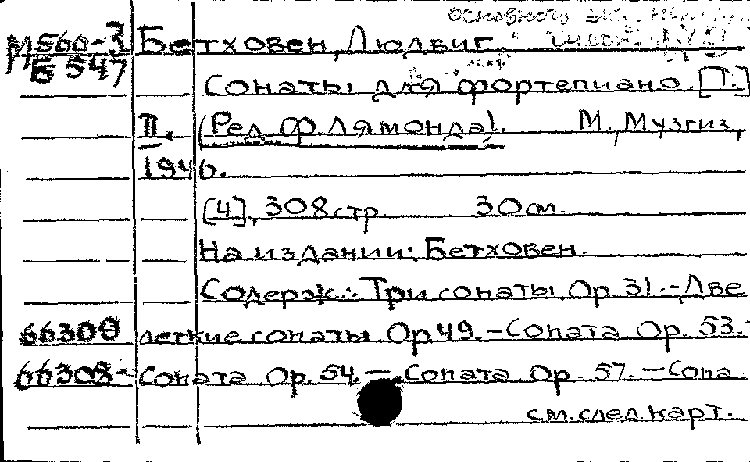 М560-3 Бетховен, Людвиг.
Б 547
Сонаты для фортепиано. [Т.]
II. (Ред. Ф. Лямонда). М., Музгиз,
1946.
[4], 308 стр. 30 см.
На издании: Бетховен.
Содерж.: Три сонаты Ор. 31.-Две
66308 легкие сонаты Ор. 49.-Соната Ор. 53.-
66308- Соната Ор. 54.-Соната Ор. 57.-Сона
см. след. карт.